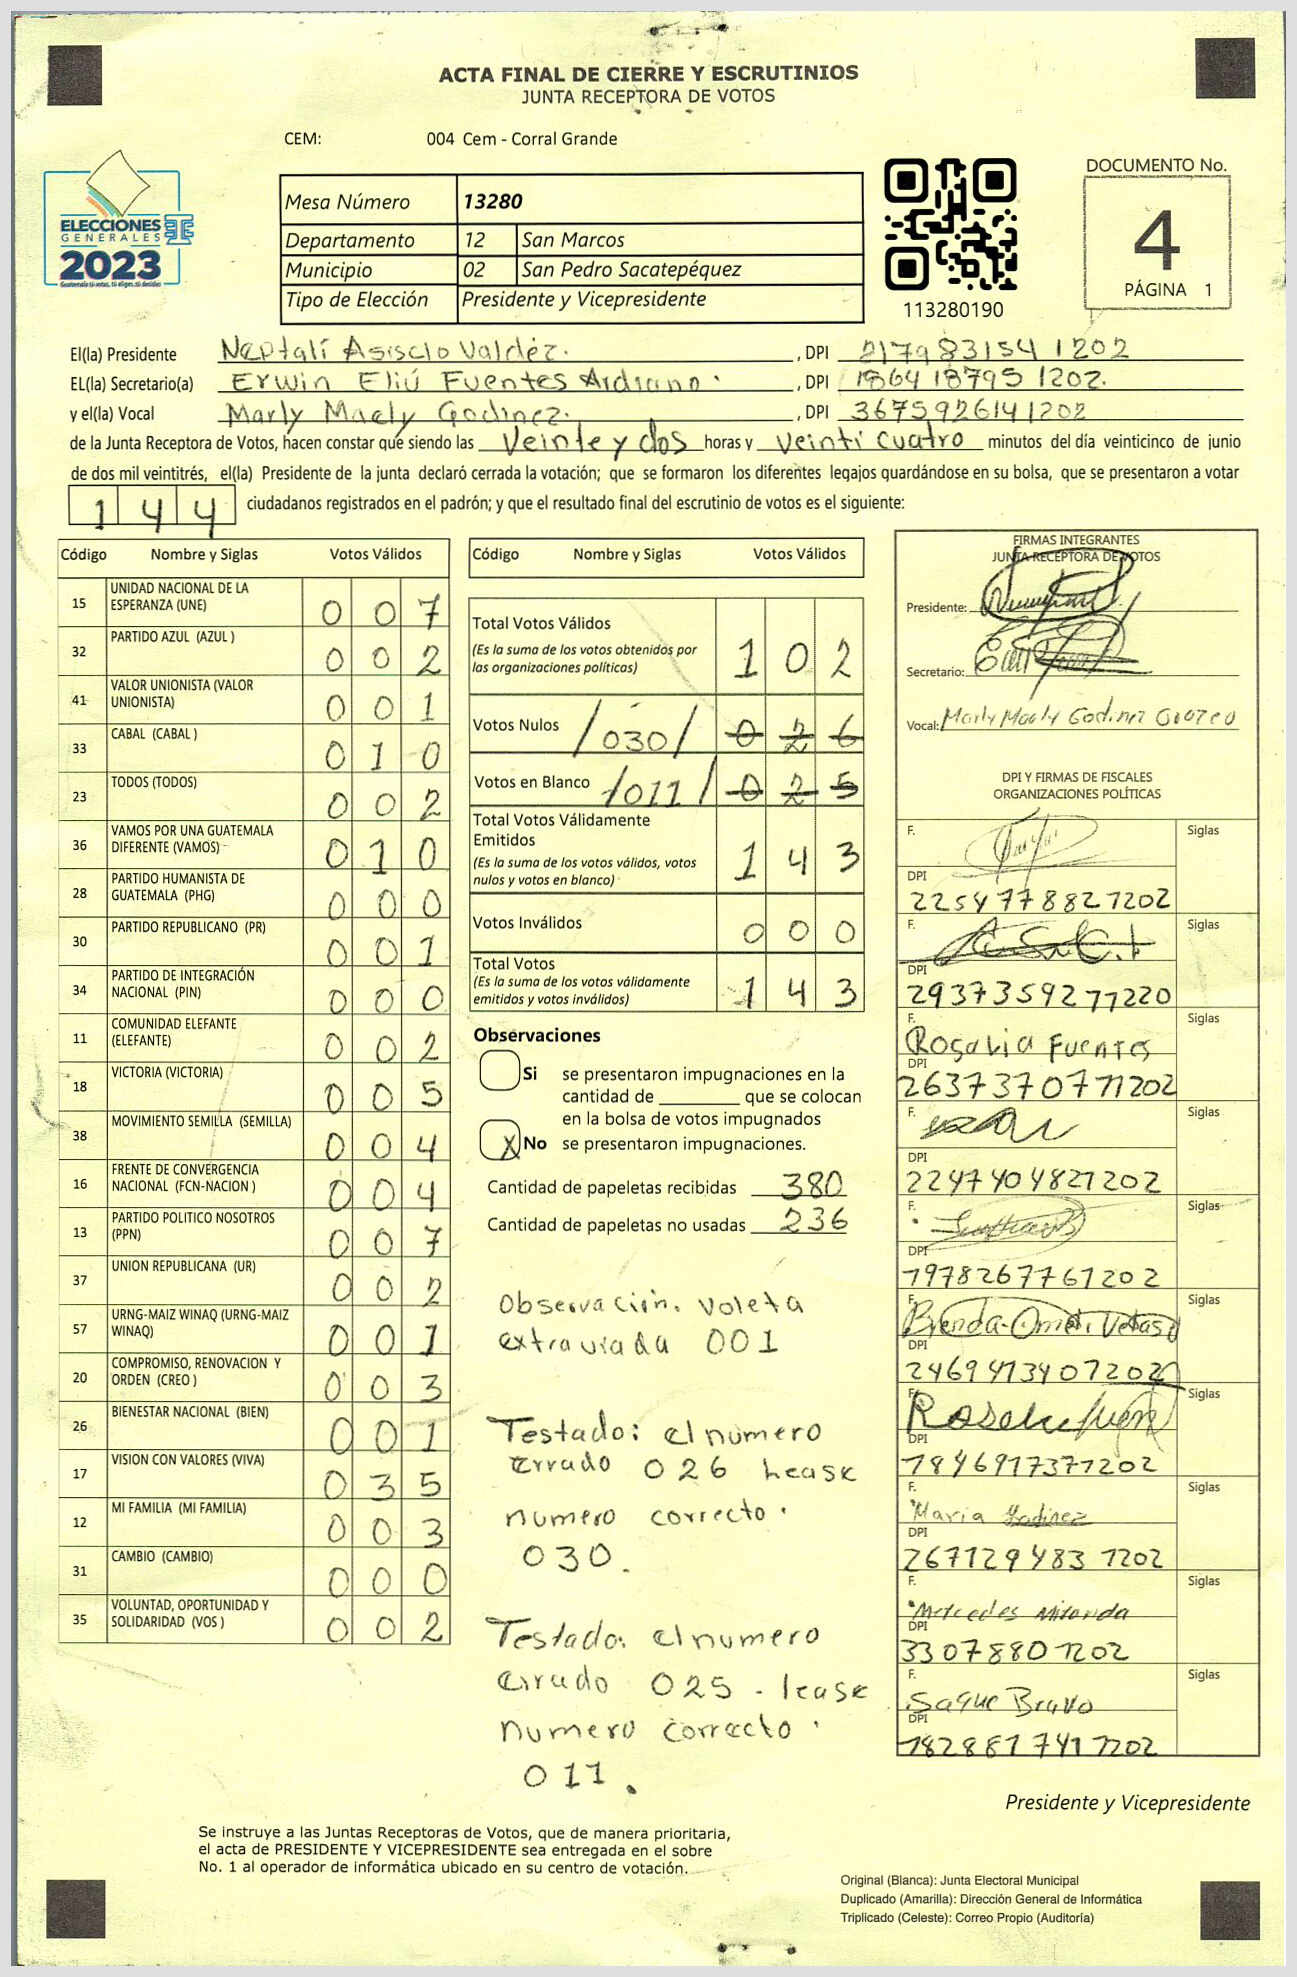 ACTA FINAL DE CIERRE Y ESCRUTINIOS
JUNTA RECEPTORA DE VOTOS
CEM: 004 Cem - Corral Grande
DOCUMENTO No.
4
PÁGINA 1
ELECCIONES
GENERALES
2023
Guatemala tú votas, tú eliges, tú decides
Mesa Número 13280
Departamento 12 San Marcos
Municipio 02 San Pedro Sacatepéquez
Tipo de Elección Presidente y Vicepresidente
113280190
El(la) Presidente Neptalí Asisclo Valdéz. , DPI 2179831541202
EL(la) Secretario(a) Erwin Eliú Fuentes Ardiano. , DPI 1864187951202.
y el(la) Vocal Marly Maely Godinez. , DPI 3675926141202
de la Junta Receptora de Votos, hacen constar que siendo las Veinte y dos horas y veinti cuatro minutos del día veinticinco de junio
de dos mil veintitrés, el(la) Presidente de la junta declaró cerrada la votación; que se formaron los diferentes legajos guardándose en su bolsa, que se presentaron a votar
144 ciudadanos registrados en el padrón; y que el resultado final del escrutinio de votos es el siguiente:
Código Nombre y Siglas Votos Válidos
15 UNIDAD NACIONAL DE LA ESPERANZA (UNE) 007
32 PARTIDO AZUL (AZUL ) 002
41 VALOR UNIONISTA (VALOR UNIONISTA) 001
33 CABAL (CABAL ) 010
23 TODOS (TODOS) 002
36 VAMOS POR UNA GUATEMALA DIFERENTE (VAMOS) 010
28 PARTIDO HUMANISTA DE GUATEMALA (PHG) 000
30 PARTIDO REPUBLICANO (PR) 001
34 PARTIDO DE INTEGRACIÓN NACIONAL (PIN) 000
11 COMUNIDAD ELEFANTE (ELEFANTE) 002
18 VICTORIA (VICTORIA) 005
38 MOVIMIENTO SEMILLA (SEMILLA) 004
16 FRENTE DE CONVERGENCIA NACIONAL (FCN-NACION ) 004
13 PARTIDO POLITICO NOSOTROS (PPN) 007
37 UNION REPUBLICANA (UR) 002
57 URNG-MAIZ WINAQ (URNG-MAIZ WINAQ) 001
20 COMPROMISO, RENOVACION Y ORDEN (CREO ) 003
26 BIENESTAR NACIONAL (BIEN) 001
17 VISION CON VALORES (VIVA) 035
12 MI FAMILIA (MI FAMILIA) 003
31 CAMBIO (CAMBIO) 000
35 VOLUNTAD, OPORTUNIDAD Y SOLIDARIDAD (VOS ) 002
Código Nombre y Siglas Votos Válidos
Total Votos Válidos 102
(Es la suma de los votos obtenidos por
las organizaciones políticas)
Votos Nulos /030/ 026
Votos en Blanco /011/ 025
Total Votos Válidamente
Emitidos 143
(Es la suma de los votos válidos, votos
nulos y votos en blanco)
Votos Inválidos 000
Total Votos 143
(Es la suma de los votos válidamente
emitidos y votos inválidos)
Observaciones
Si se presentaron impugnaciones en la
cantidad de ________ que se colocan
en la bolsa de votos impugnados
X No se presentaron impugnaciones.
Cantidad de papeletas recibidas 380
Cantidad de papeletas no usadas 236
Observación. Voleta
extraviada 001
Testado: el numero
errado 026 lease
numero correcto.
030.
Testado. el numero
errado 025 . lease
numero correcto.
011.
FIRMAS INTEGRANTES
JUNTA RECEPTORA DE VOTOS
Presidente:
Secretario:
Vocal: Marly Maely Godinez Orozco
DPI Y FIRMAS DE FISCALES
ORGANIZACIONES POLÍTICAS
F. Siglas
DPI
2254778821202
F. Siglas
DPI
2937359271220
F. Siglas
Rosalia Fuentes
DPI
2637370711202
F. Siglas
DPI
2247404821202
F. Siglas
DPI
1978267761202
F. Siglas
Brenda
DPI
2469413401202
F. Siglas
DPI
1846917371202
F. Siglas
Maria Godinez
DPI
2671294831202
F. Siglas
Mercedes Miranda
DPI
33078801202
F. Siglas
Saque Bravo
DPI
1828817411202
Presidente y Vicepresidente
Se instruye a las Juntas Receptoras de Votos, que de manera prioritaria,
el acta de PRESIDENTE Y VICEPRESIDENTE sea entregada en el sobre
No. 1 al operador de informática ubicado en su centro de votación.
Original (Blanca): Junta Electoral Municipal
Duplicado (Amarilla): Dirección General de Informática
Triplicado (Celeste): Correo Propio (Auditoría)